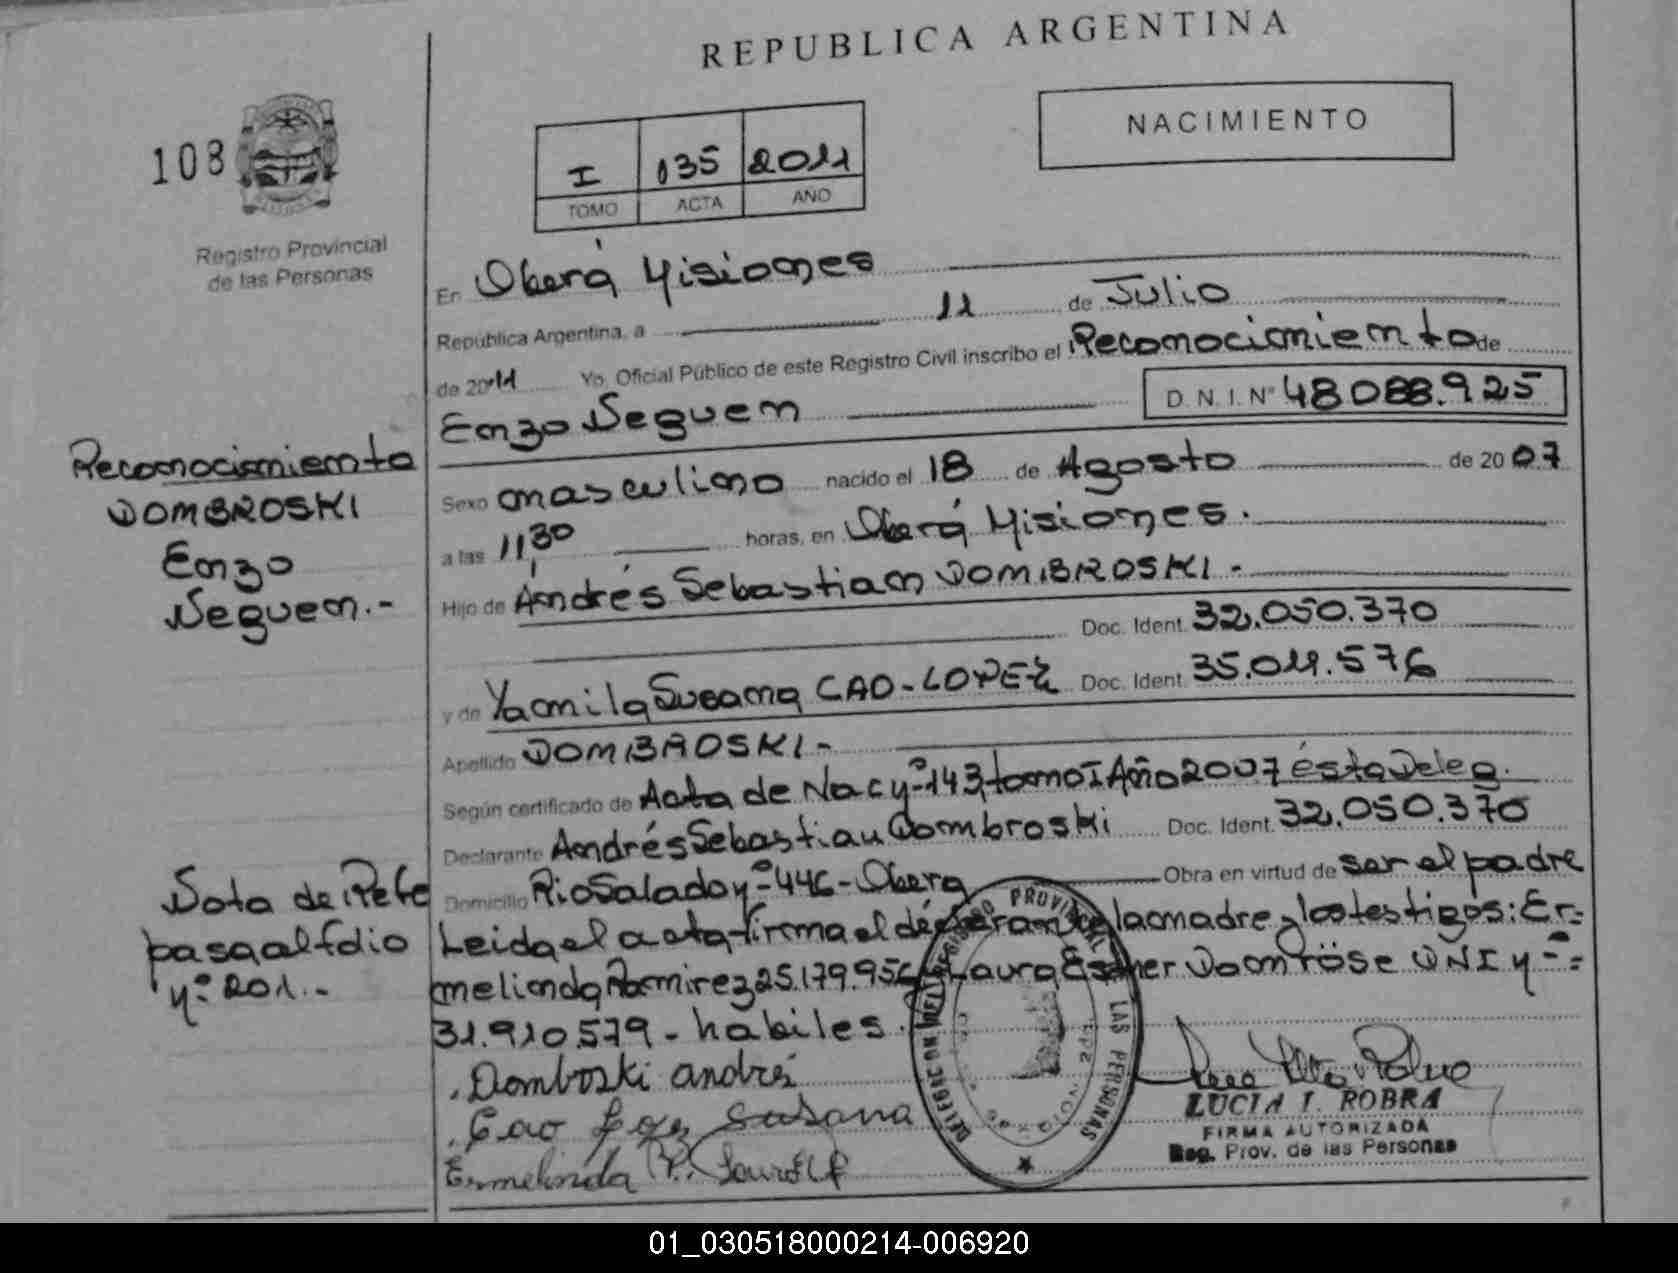 REPUBLICA ARGENTINA
108
NACIMIENTO
I 135 2011
TOMO ACTA AÑO
Registro Provincial
de las Personas
En Oberá Misiones
República Argentina, a 11 de Julio
de 2011 Yo, Oficial Público de este Registro Civil inscribo el Reconocimiento de
Enzo Neguen D. N. I. Nº 48088.925
Reconocimiento
DOMBROSKI
Enzo
Neguen.-
Sexo masculino nacido el 18 de Agosto de 2007
a las 11,30 horas, en Oberá Misiones.
Hijo de Andrés Sebastian DOMBROSKI-
Doc. Ident. 32.050.370
y de Yamila Susana CAO-LOPEZ Doc. Ident. 35.011.576
Apellido DOMBROSKI-
Según certificado de Acta de Nac Nº 143, tomo I Año 2007 ésta Deleg.
Declarante Andrés Sebastian Dombroski Doc. Ident. 32.050.370
Domicilio Rio Salado Nº 446- Obera Obra en virtud de ser el padre
Nota de Refe
pasa al folio
Nº 201.-
Leida el acta firma el declarante la madre y los testigos: Er-
melinda Ramirez 25.179.956 Laura Esther Domröse DNI Nº-
31.910.579- habiles.
Domboski andrés
Cao Susana
Ermelinda R.
DELEGACION DEL REGISTRO PROVINCIAL DE LAS PERSONAS
LUCIA I. ROBRA
FIRMA AUTORIZADA
Reg. Prov. de las Personas
01_030518000214-006920